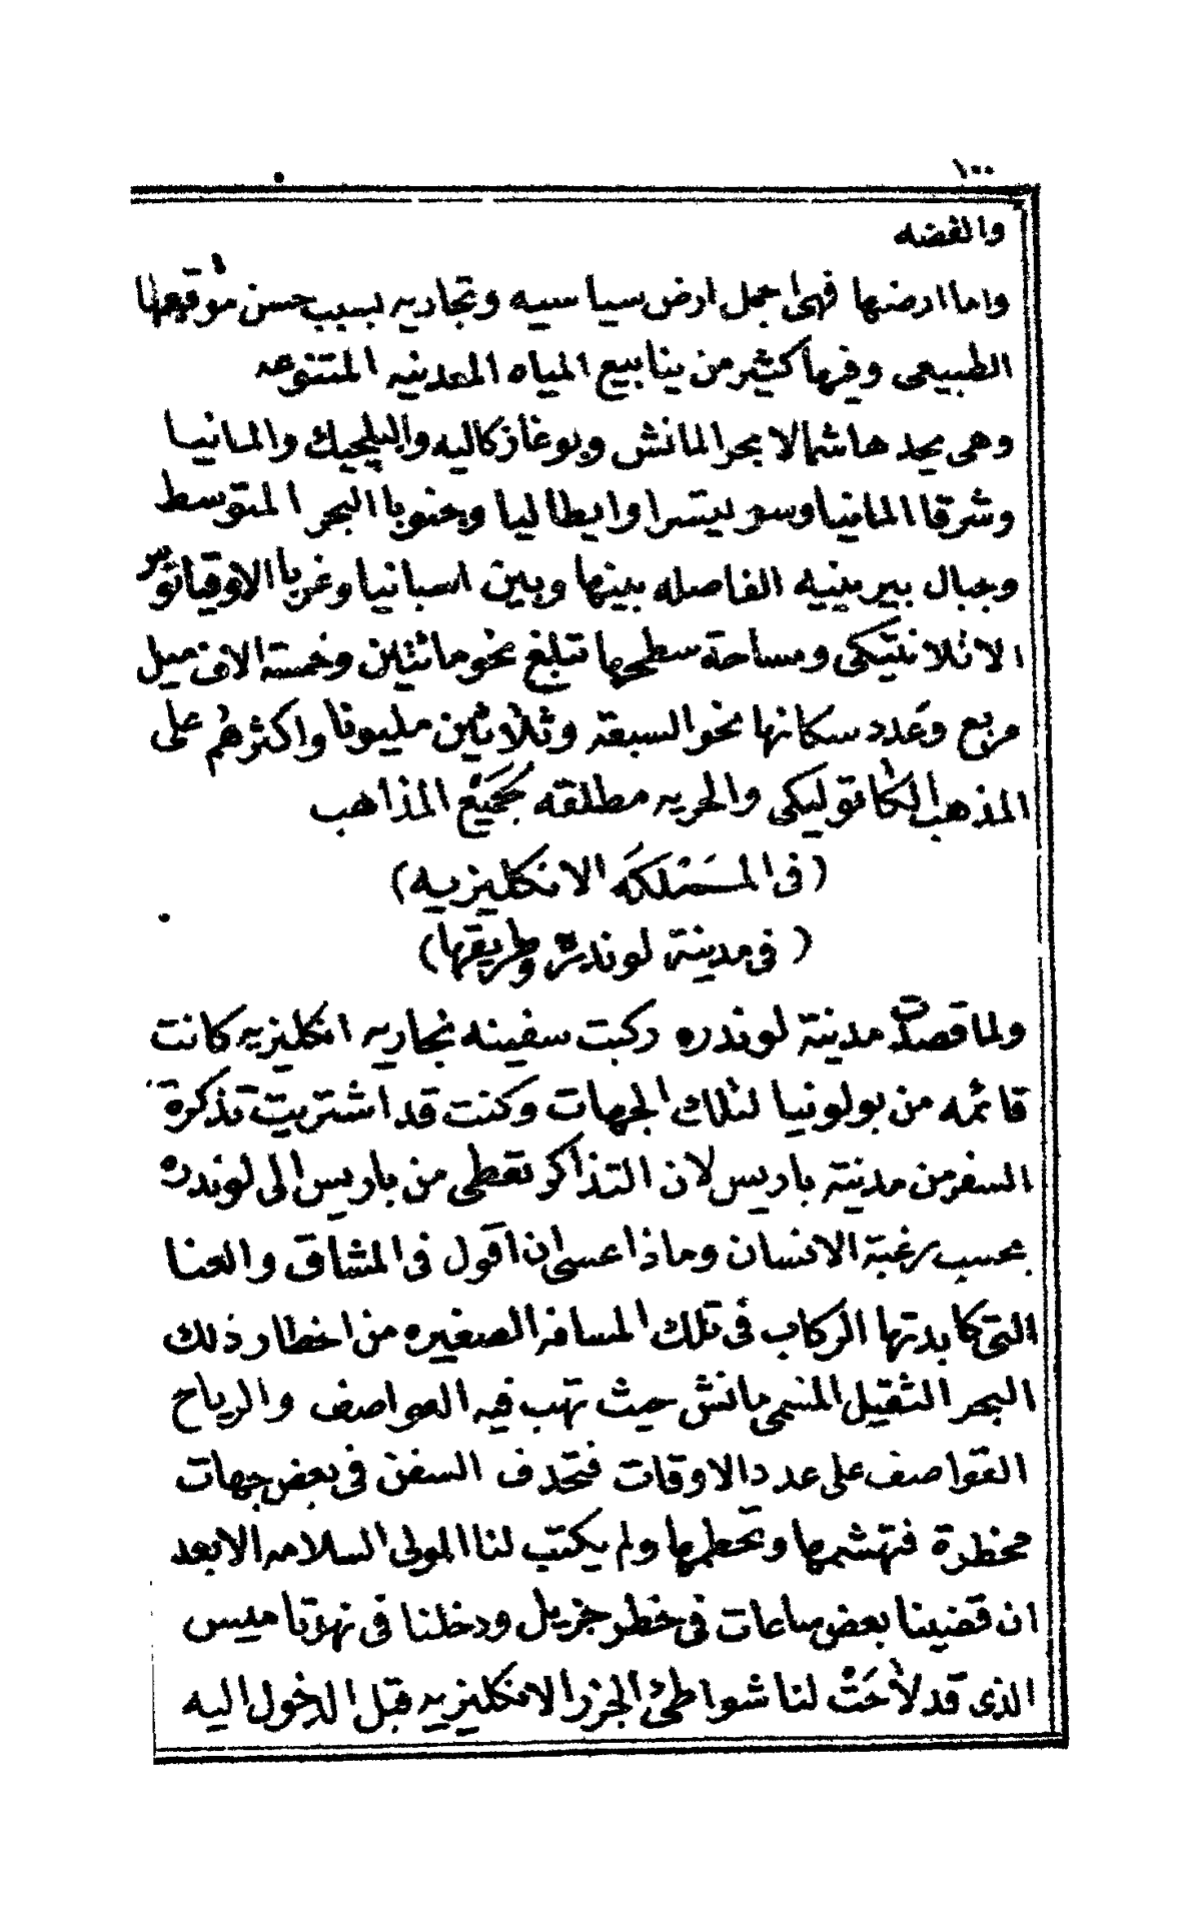 ١٠٠
والفضه
واما ارضها فهى اجمل ارض سياسيه وتجاريه بسبب حسن موقعها
الطبيعى وفيها كثير من ينابيع المياه المعدنيه المتنوعه
وهى يحدها شمالا بحر المانش وبوغاز كاليه والبلجيك والمانيا
وشرقا المانيا وسويتسرا وايطاليا وجنوبا البحر المتوسط
وجبال بيرينيه الفاصله بينها وبين اسبانيا وغربا الاوقيانوس
الاتلانتيكى ومساحة سطحها تبلغ نحو مائتين وخمسة الاف ميل
مربع وعدد سكانها نحو السبعة وثلاثين مليونا واكثرهم على
المذهب الكاتوليكى والحريه مطلقه لجميع المذاهب
(فى المملكه الانكليزيه)
(فى مدينة لوندره وطريقها)
ولما قصدت مدينة لوندره ركبت سفينه تجاريه انكليزيه كانت
قائمه من بولونيا لتلك الجهات وكنت قد اشتريت تذكرة
السفر من مدينة باريس لان التذاكر تعطى من باريس الى لوندره
بحسب رغبة الانسان وماذا عسى ان اقول فى المشاق والعنا
التى كابدتها الركاب فى تلك المسافه الصغيره من اخطار ذلك
البحر الثقيل المسمى مانش حيث تهب فيه العواصف والرياح
القواصف على عدد الاوقات فتحدف السفن فى بعض جهات
مخطرة فتهشمها وتحطمها ولم يكتب لنا المولى السلامه الا بعد
ان قضينا بعض ساعات فى خطر جزيل ودخلنا فى نهر تاميس
الذى قد لاحت لنا شواطئ الجزر الانكليزيه قبل الدخول اليه